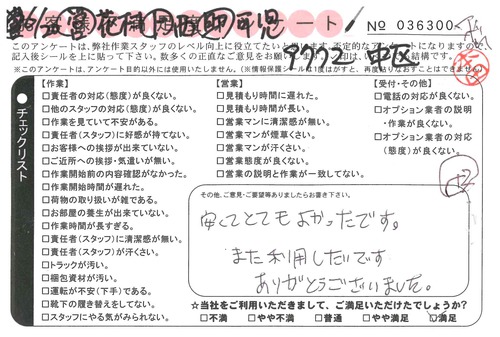 アンケート
No 036300
9772 中区
このアンケートは、弊社作業スタッフのレベル向上に役立てたいと
記入後シールを上に貼って下さい。数多くの正直なご意見をお願い
※このアンケートは、アンケート目的以外には使用いたしません。(※情報保護シールは1度はがすと、再度貼りなおすことはできません)
チェックリスト
【作業】
□責任者の対応(態度)が良くない。
□他のスタッフの対応(態度)が良くない。
□作業を見ていて不安がある。
□責任者(スタッフ)に好感が持てない。
□お客様への挨拶が出来ていない。
□ご近所への挨拶・気遣いが無い。
□作業開始前の内容確認がなかった。
□作業開始時間が遅れた。
□荷物の取り扱いが雑である。
□お部屋の養生が出来ていない。
□作業時間が長すぎる。
□責任者(スタッフ)に清潔感が無い。
□責任者(スタッフ)が汗くさい。
□トラックが汚い。
□梱包資材が汚い。
□運転が不安(下手)である。
□靴下の履き替えをしてない。
□スタッフにやる気がみられない。
【営業】
□見積もり時間に遅れた。
□見積もり時間が長い。
□営業マンに清潔感が無い。
□営業マンが煙草くさい。
□営業マンが汗くさい。
□営業態度が良くない。
□営業の説明と作業が一致してない。
【受付・その他】
□電話の対応が良くない。
□オプション業者の説明
・作業が良くない。
□オプション業者の対応
(態度)が良くない。
その他、ご意見・ご要望等ありましたらお書き下さい。
安くてとてもよかったです。
また利用したいです
ありがとうございました。
☆当社をご利用いただきまして、ご満足いただけてでしょうか?
□不満 □やや不満 □普通 □やや満足 □満足